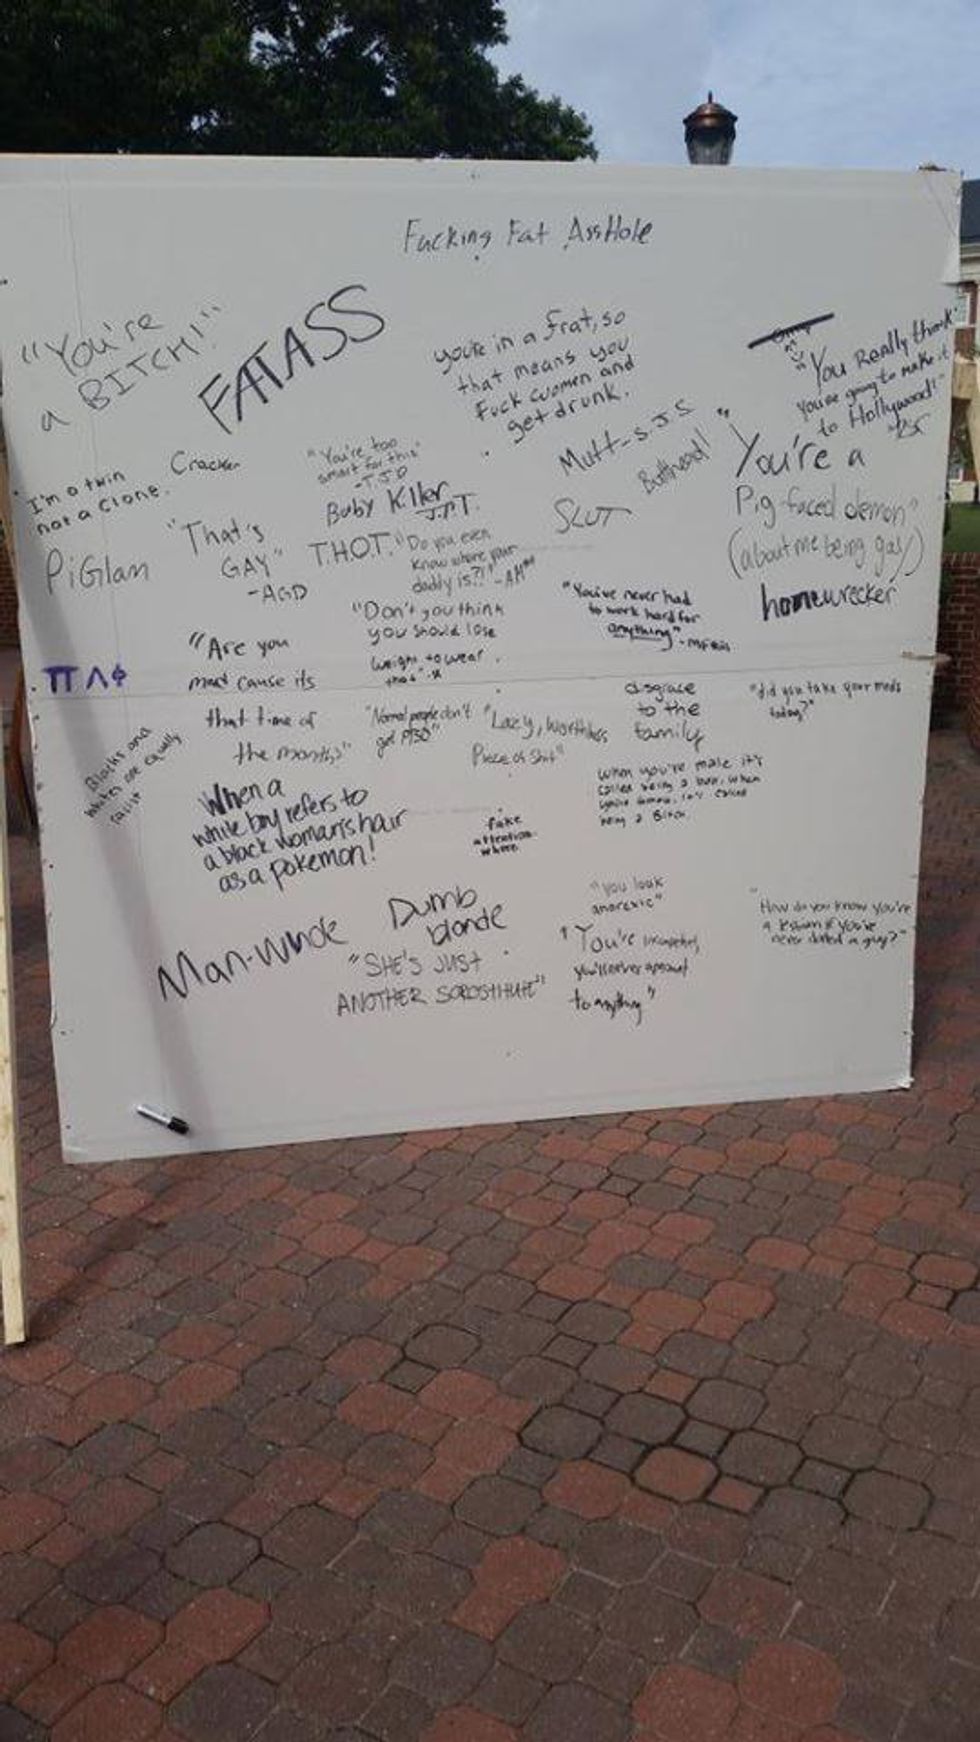 Fucking Fat AssHole
"You're
a BITCH!"
FATASS
you're in a frat, so
that means you
Fuck women and
get drunk.
"You Really think
you're going to make it
to Hollywood!"
I'm a twin
not a clone.
Cracker
"You're too
smart for this"
-TJD
Mutt-S.J.S
Butthead!
"You're a
Pig-faced demon"
(about me being gay)
Baby Killer
J.P.T.
SLUT
PiGlan
"That's
GAY"
-AGD
T.H.O.T.
"Do you even
know where your
daddy is?!"
homewrecker
"Don't you think
you should lose
weight to wear
that"
"You've never had
to work hard for
anything"
"Are you
mad cause its
that time of
the month?"
ΠΛΦ
"Normal people don't
get PTSD"
"Lazy, worthless
Piece of Shit"
disgrace
to the
family
"did you take your meds
today?"
Blacks and
whites are equally
When a
white boy refers to
a black woman's hair
as a pokemon!
fake
attention
whore
when you're male it's
called being a boss, when
you're female, it's called
being a Bitch
Man-Whole
Dumb
blonde
"SHE'S JUST
ANOTHER SOROSTITUTE"
"you look
anorexic"
"You're incompetent,
you'll never amount
to anything"
"How do you know you're
a lesbian if you've
never dated a guy?"